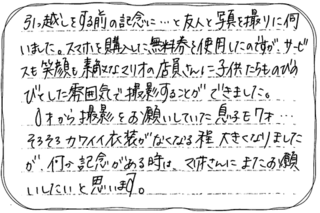 引っ越しをする前の記念に…と友人と写真を撮りに伺
いました。スマホを購入した無料券を使用したのですが、サービ
スも笑顔も素敵なマリオの店員さんに子供たちものびの
びとした雰囲気で撮影することができました。
1才から撮影をお願いしていた息子も7才…
そろそろカワイイ衣装がなくなる程大きくなりました
が、何か記念がある時は、マリオさんにまたお願
いしたいと思います。